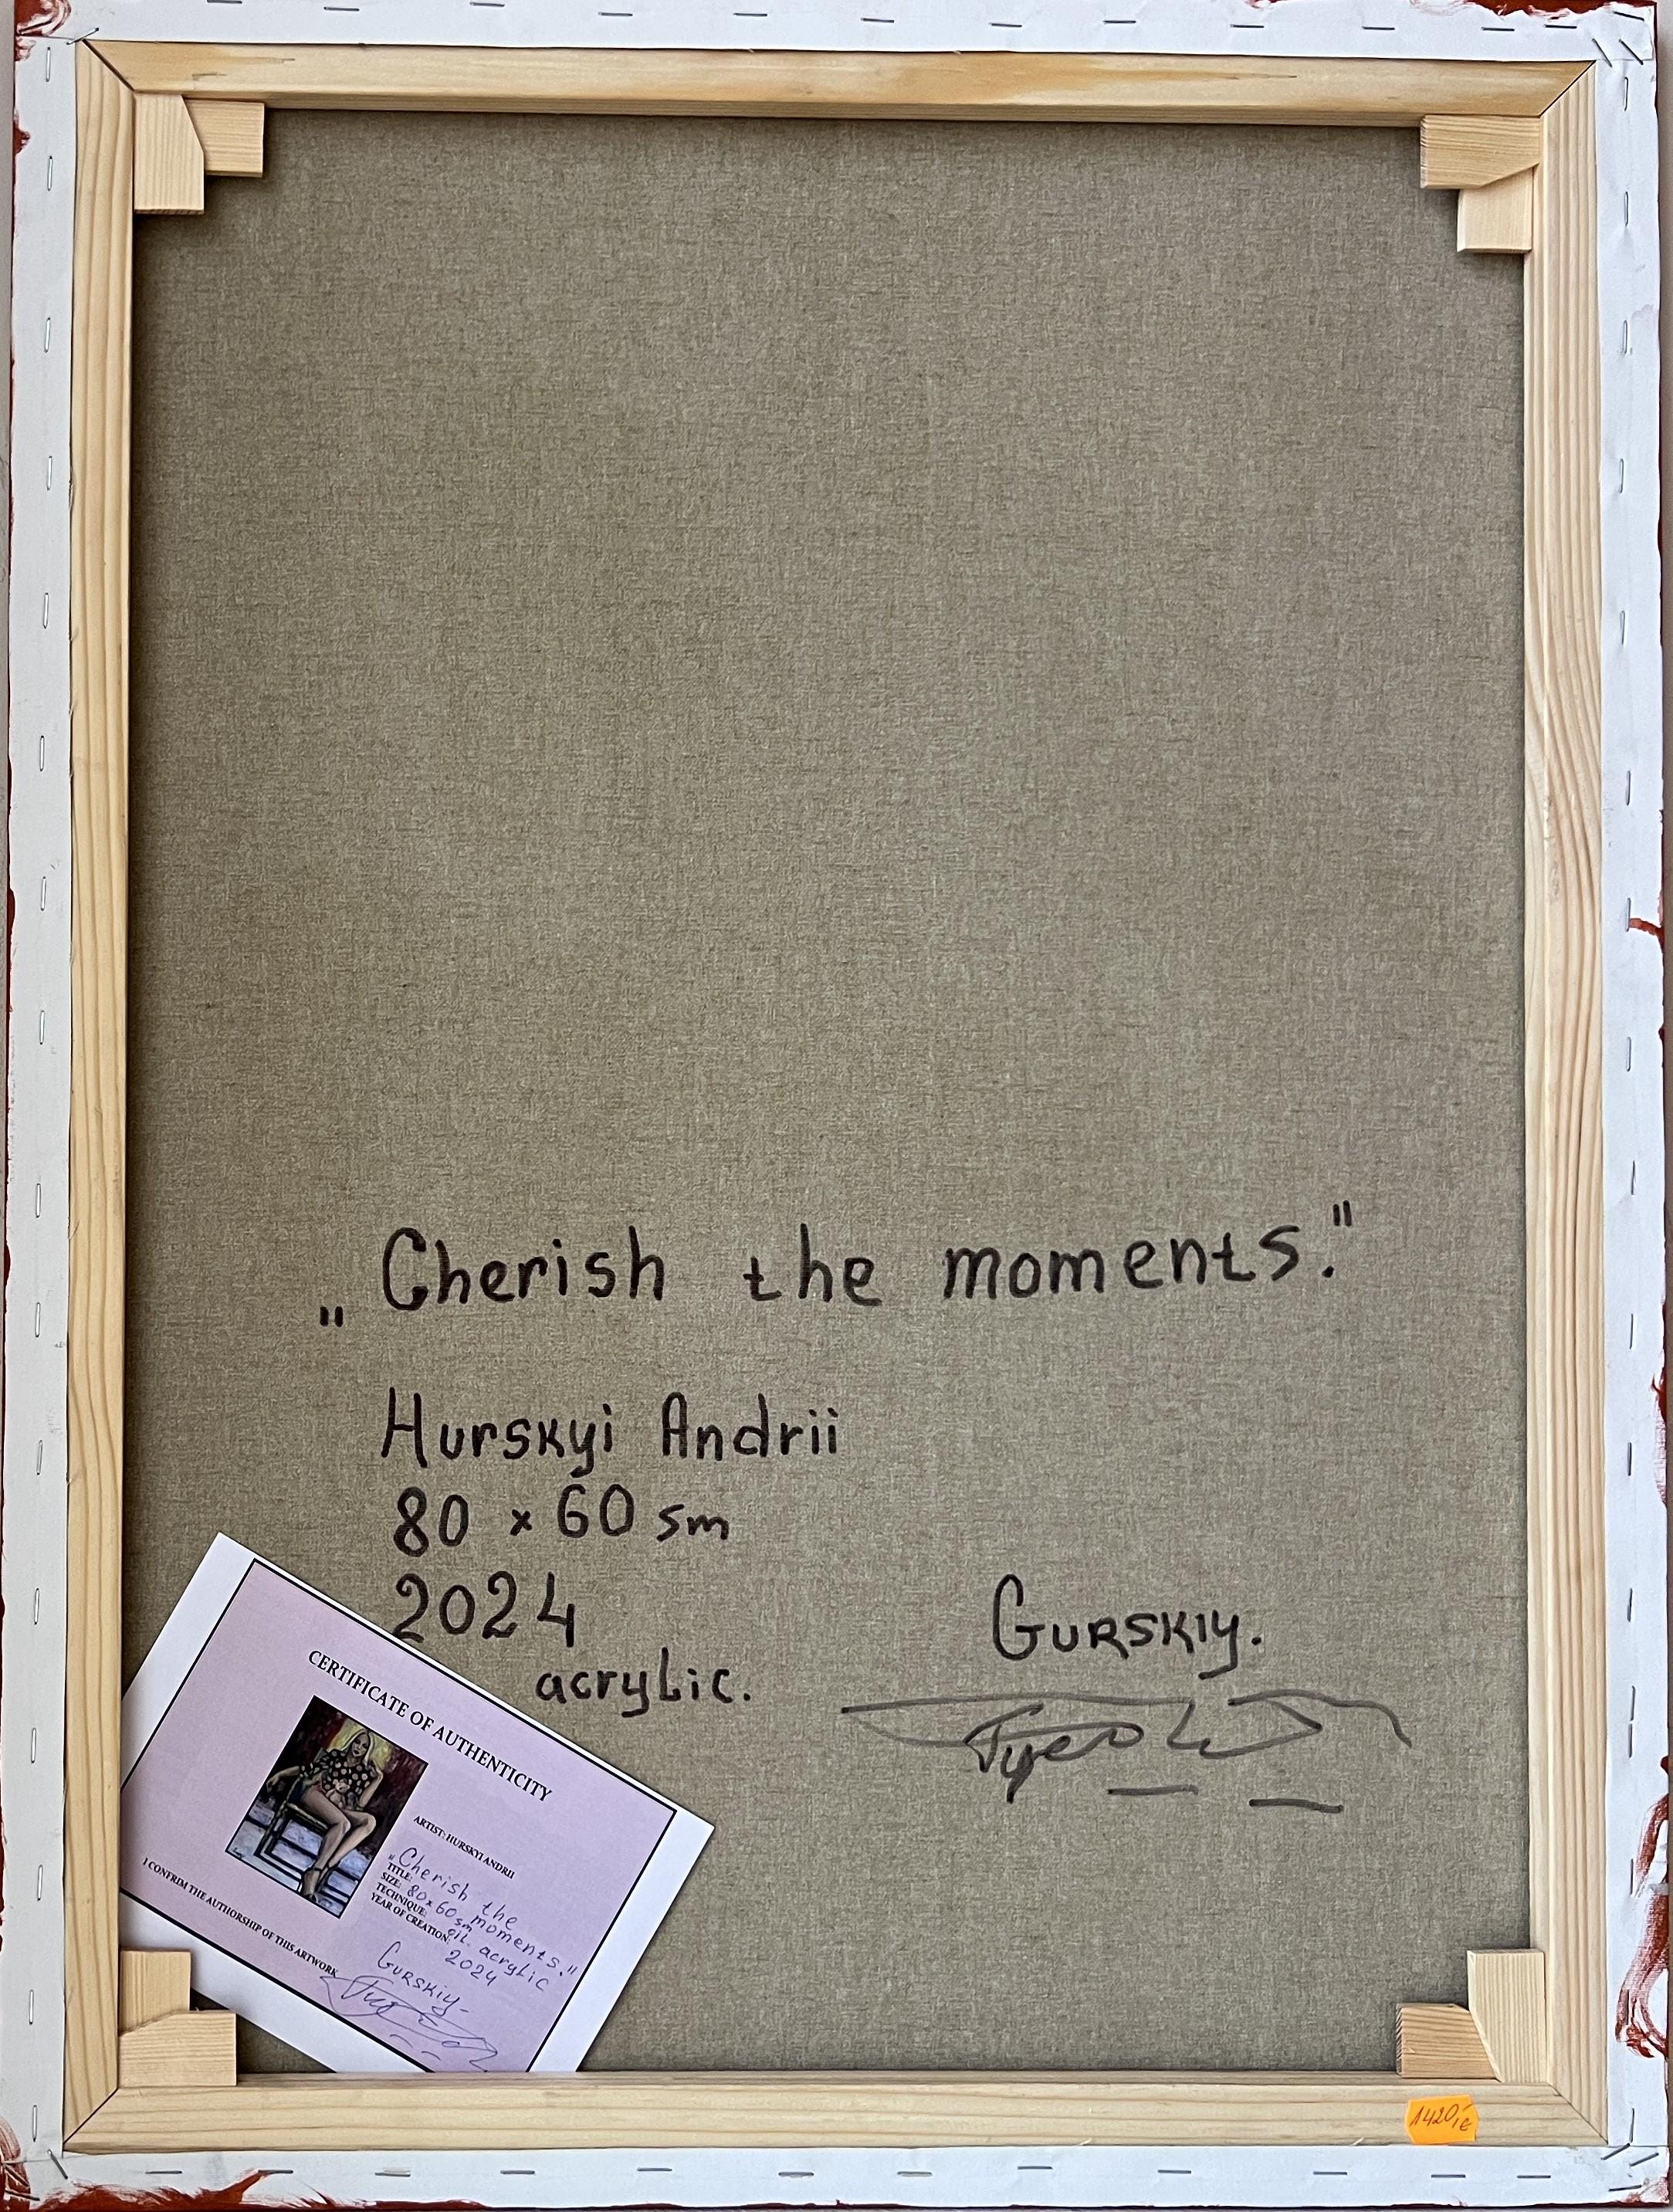 „Cherish the moments."
Hurskyi Andrii
80 × 60 sm
2024
acrylic.
Gurskiy.
CERTIFICATE OF AUTHENTICITY
ARTIST: HURSKYI ANDRII
TITLE: „Cherish the moments."
SIZE: 80 × 60 sm
TECHNIQUE: oil. acrylic
YEAR OF CREATION: 2024
I CONFRIM THE AUTHORSHIP OF THIS ARTWORK
Gurskiy
1420,- €